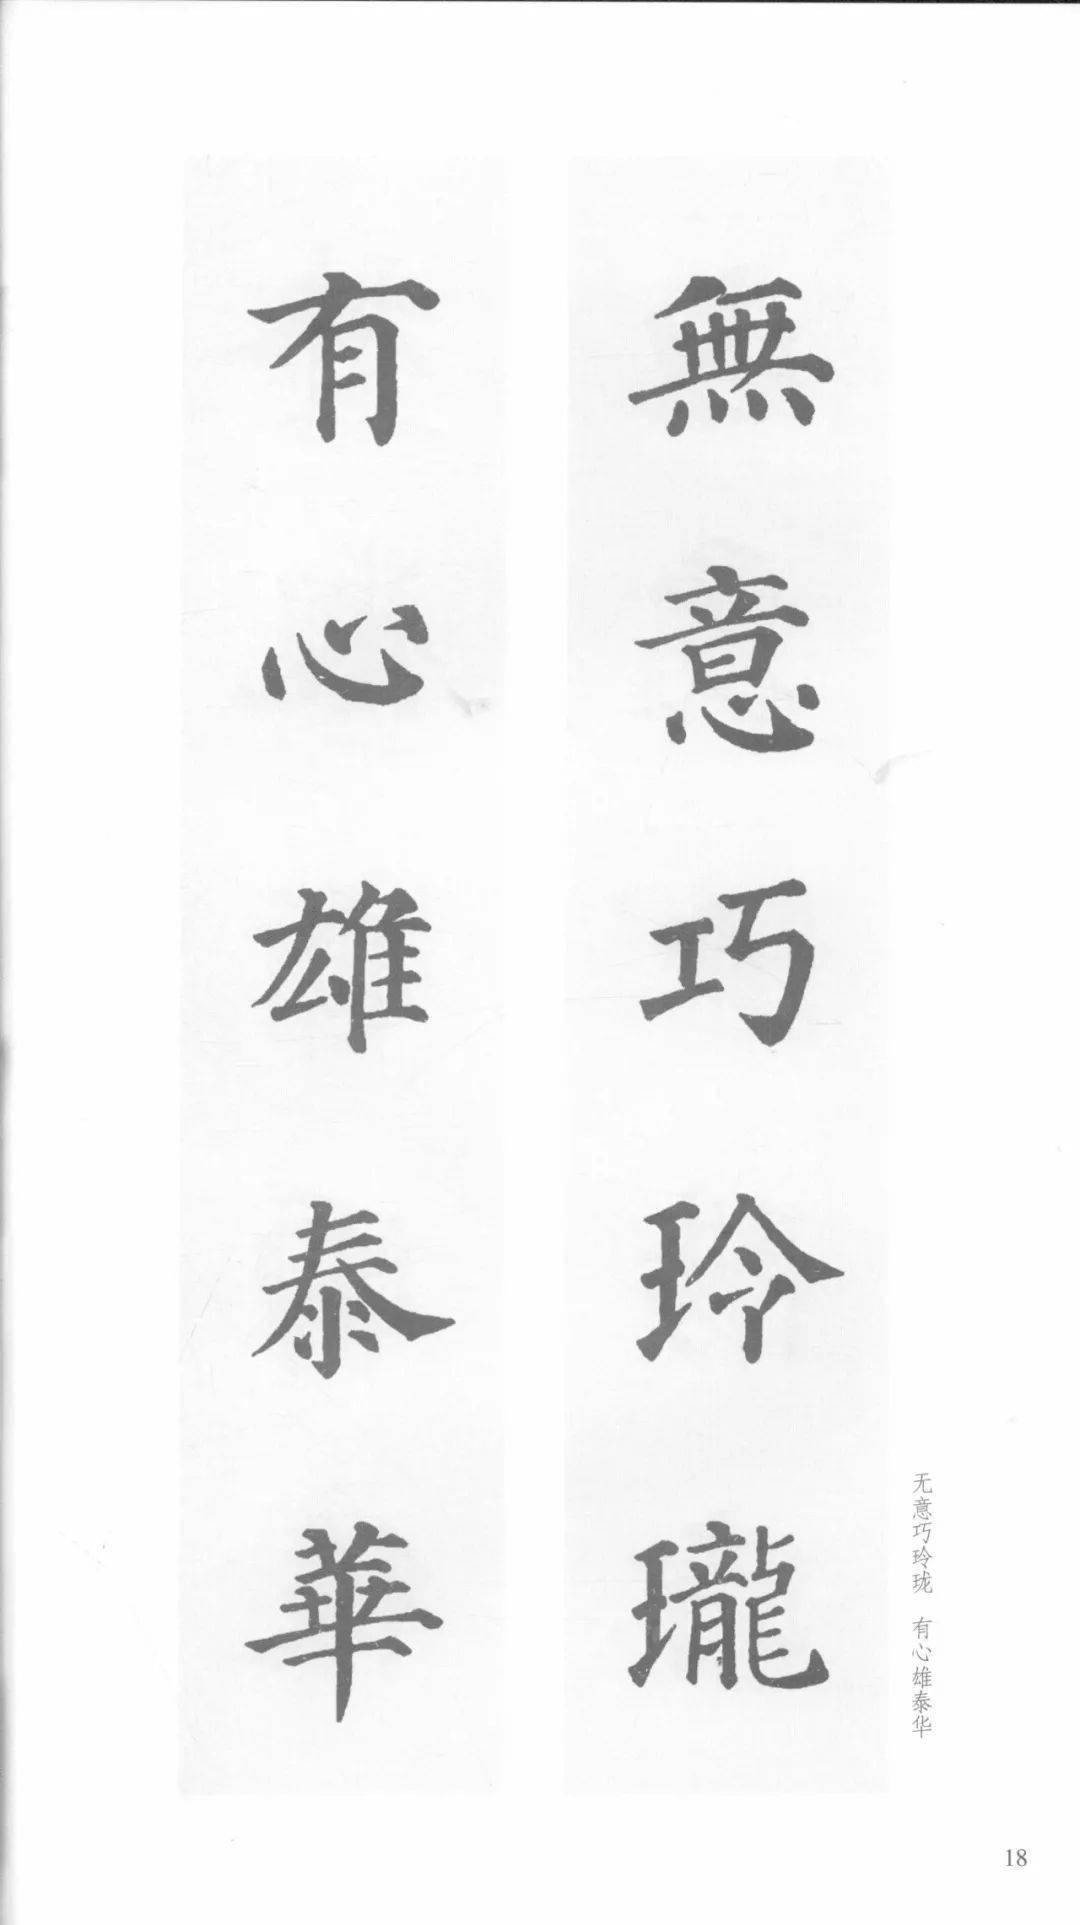 無意巧玲瓏
有心雄泰華
无意巧玲珑 有心雄泰华
18